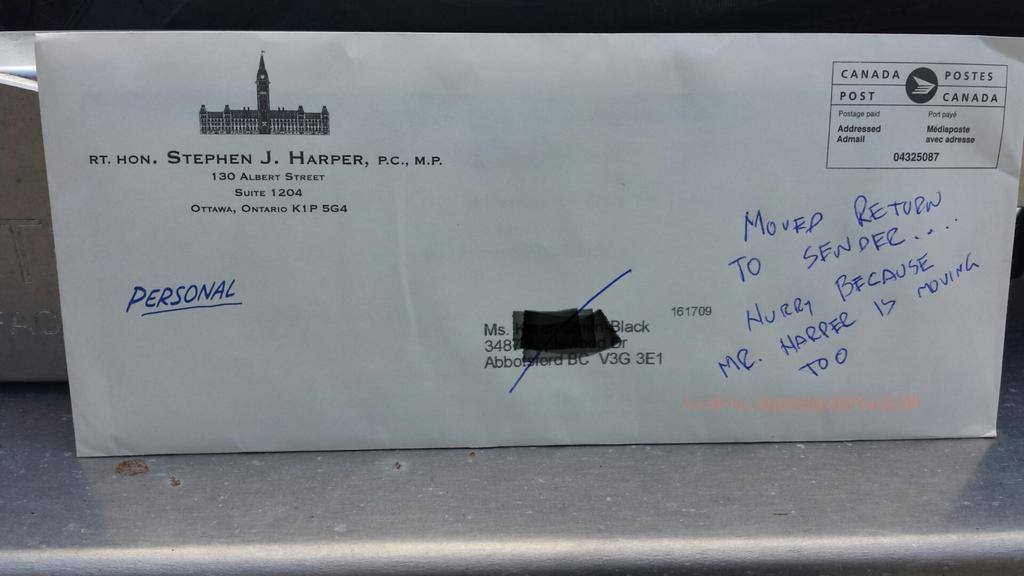 RT. HON. STEPHEN J. HARPER, P.C., M.P.
130 ALBERT STREET
SUITE 1204
OTTAWA, ONTARIO K1P 5G4
CANADA POSTES
POST CANADA
Postage paid Port payé
Addressed Médiaposte
Admail avec adresse
04325087
PERSONAL
161709
Ms. Black
3487 Dr
Abbotsford BC V3G 3E1
MOVED RETURN
TO SENDER...
HURRY BECAUSE
MR. HARPER IS MOVING
TOO